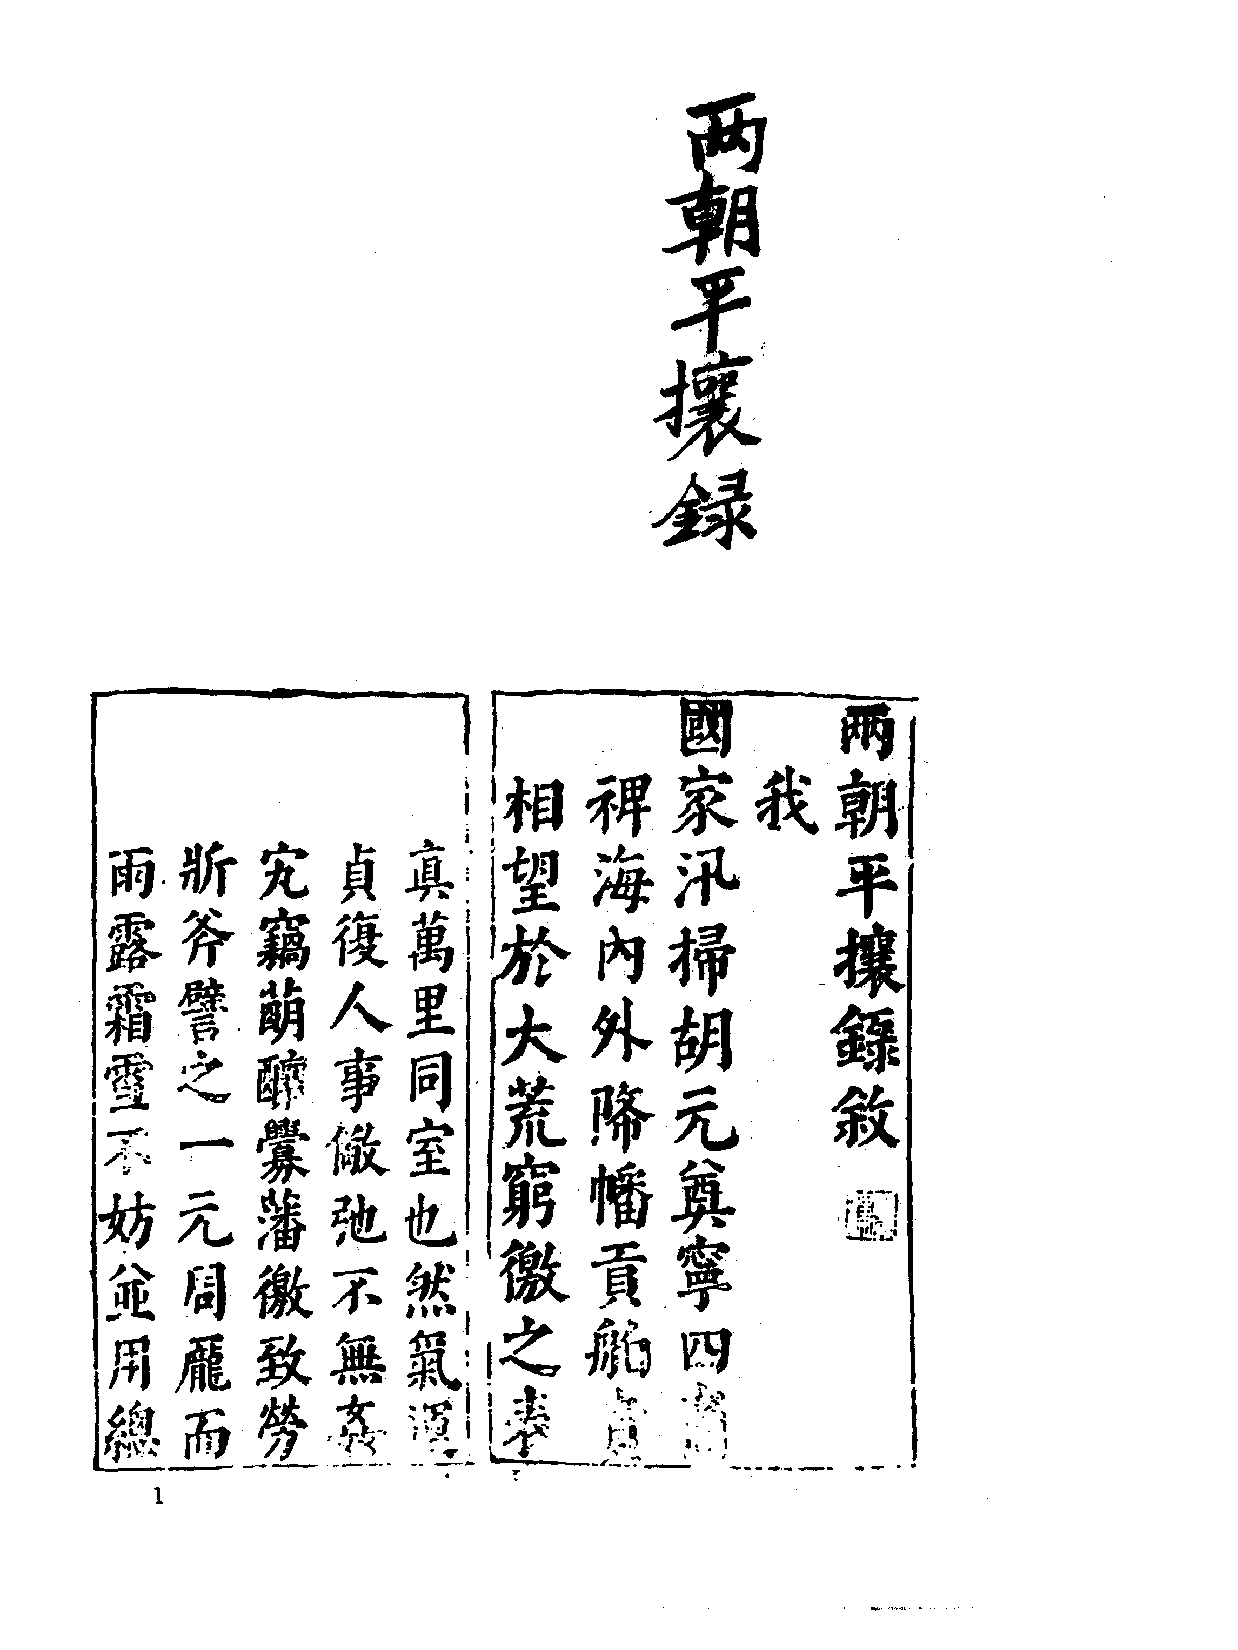 两朝平攘録
兩朝平攘錄敘
我
國家汛掃胡元奠寧四
裨海內外降幡貢舶
相望於大荒窮徼之表
真萬里同室也然氣運
貞復人事儆弛不無姦
宄竊萌釁藩徼致勞
斨斧譬之一元同龐而
雨露霜雪不妨並用總
1